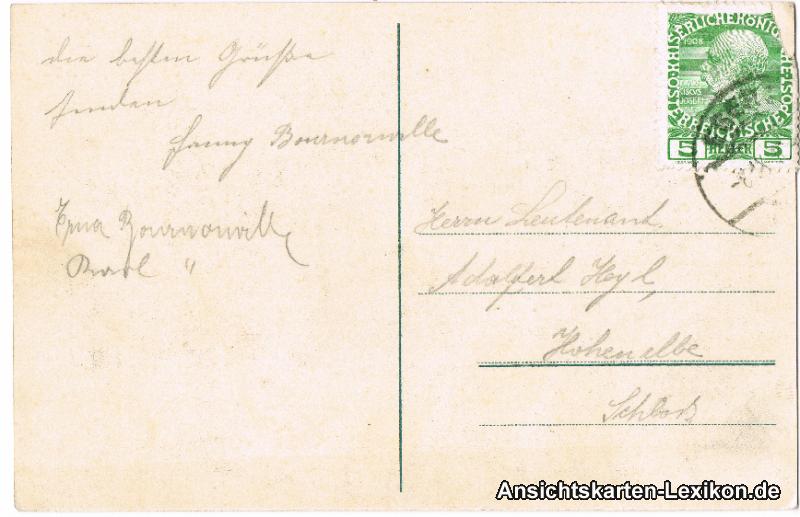 die besten Grüße
senden
Fanny Bournonville
Erna Bournonville
Karl "
KAISERLICHE KÖNIGLICHE ÖSTERREICHISCHE POST
1908
FRANCISCUS JOSEF I
5 HELLER 5
Herrn Leutenant
Adalbert Heyl,
Hohenelbe
Schloß
Ansichtskarten-Lexikon.de